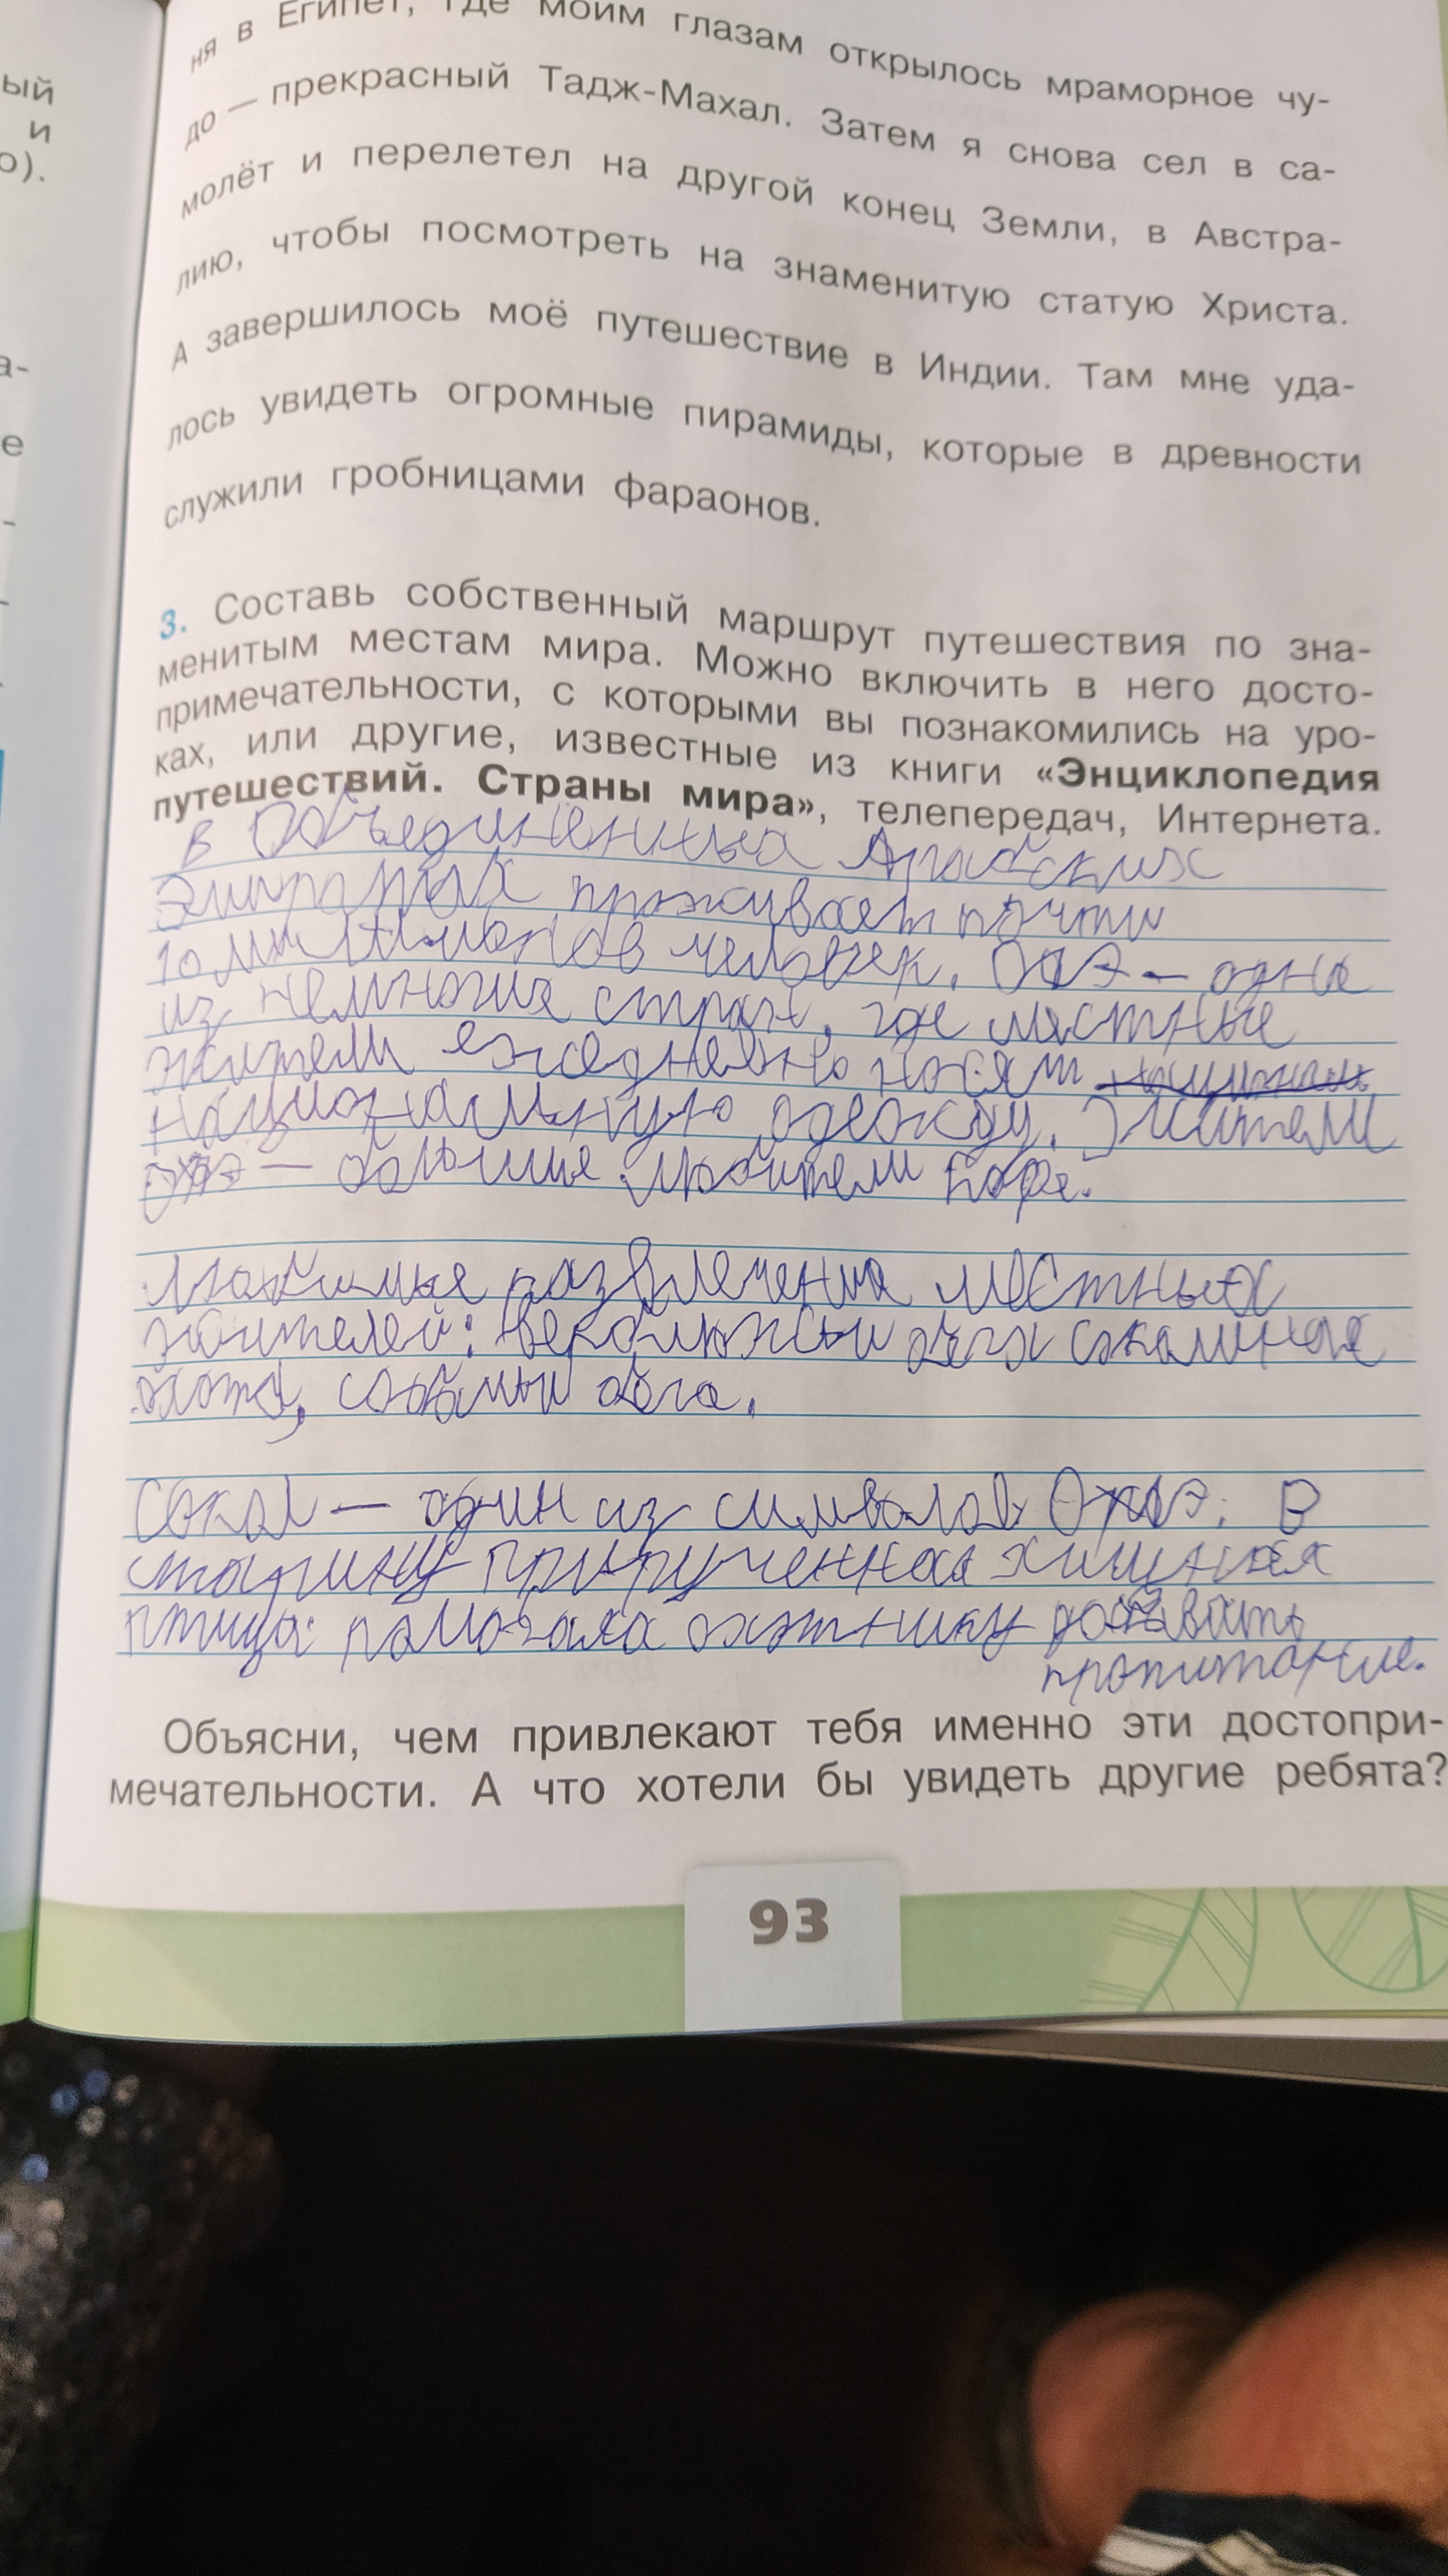 ый
и
о).
а-
е
-
ня в Египет, где моим глазам открылось мраморное чу-
до — прекрасный Тадж-Махал. Затем я снова сел в са-
молёт и перелетел на другой конец Земли, в Австра-
лию, чтобы посмотреть на знаменитую статую Христа.
А завершилось моё путешествие в Индии. Там мне уда-
лось увидеть огромные пирамиды, которые в древности
служили гробницами фараонов.
3. Составь собственный маршрут путешествия по зна-
менитым местам мира. Можно включить в него досто-
примечательности, с которыми вы познакомились на уро-
ках, или другие, известные из книги «Энциклопедия
путешествий. Страны мира», телепередач, Интернета.
в Объединенных Арабских
Эмиратах проживает почти
10 миллионов человек. ОАЭ — одна
из немногих стран, где местные
жители ежедневно носят
национальную одежду. Жители
ОАЭ — большие любители кофе.
Любимые развлечения местных
жителей: бега соколиная
охота, бега.
Сокол — один из символов ОАЭ. В
старину прирученная хищная
птица помогала охотнику добывать
пропитание.
Объясни, чем привлекают тебя именно эти достопри-
мечательности. А что хотели бы увидеть другие ребята?
93